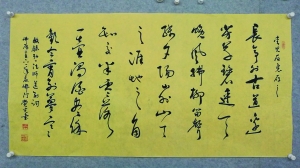 長亭外古道邊
芳草碧連天
晚風拂柳笛聲
殘夕陽山外山天
之涯地之角
知交半零落
一壺濁酒盡餘
歡今宵別夢寒
弘一法師送別詞